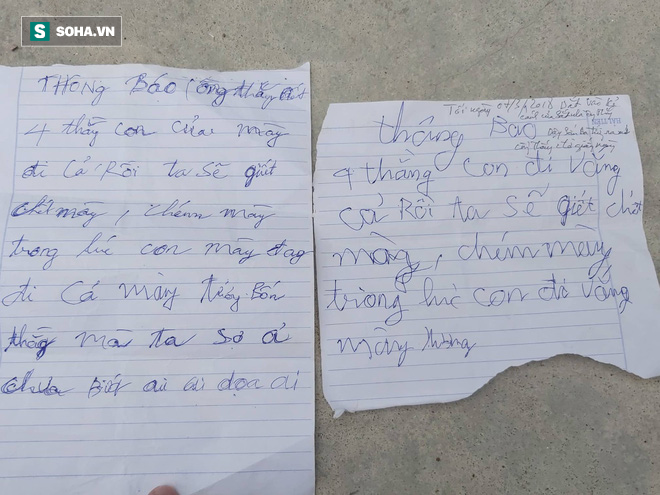 SOHA.VN
THONG BÁO
4 thằng con của mày
đi cả Rồi ta sẽ giết
chết mày, chém mày
trong lúc con mày
đi cả mày tưởng Bốn
thằng mà ta sợ à
chưa Biết ai ai dọa ai
Tối ngày 04/5/2018
thông BaO
4 thằng con đi Vắng
cả Rồi ta sẽ giết chết
mày, chém mày
trong lúc con đi vắng
mày tưởng